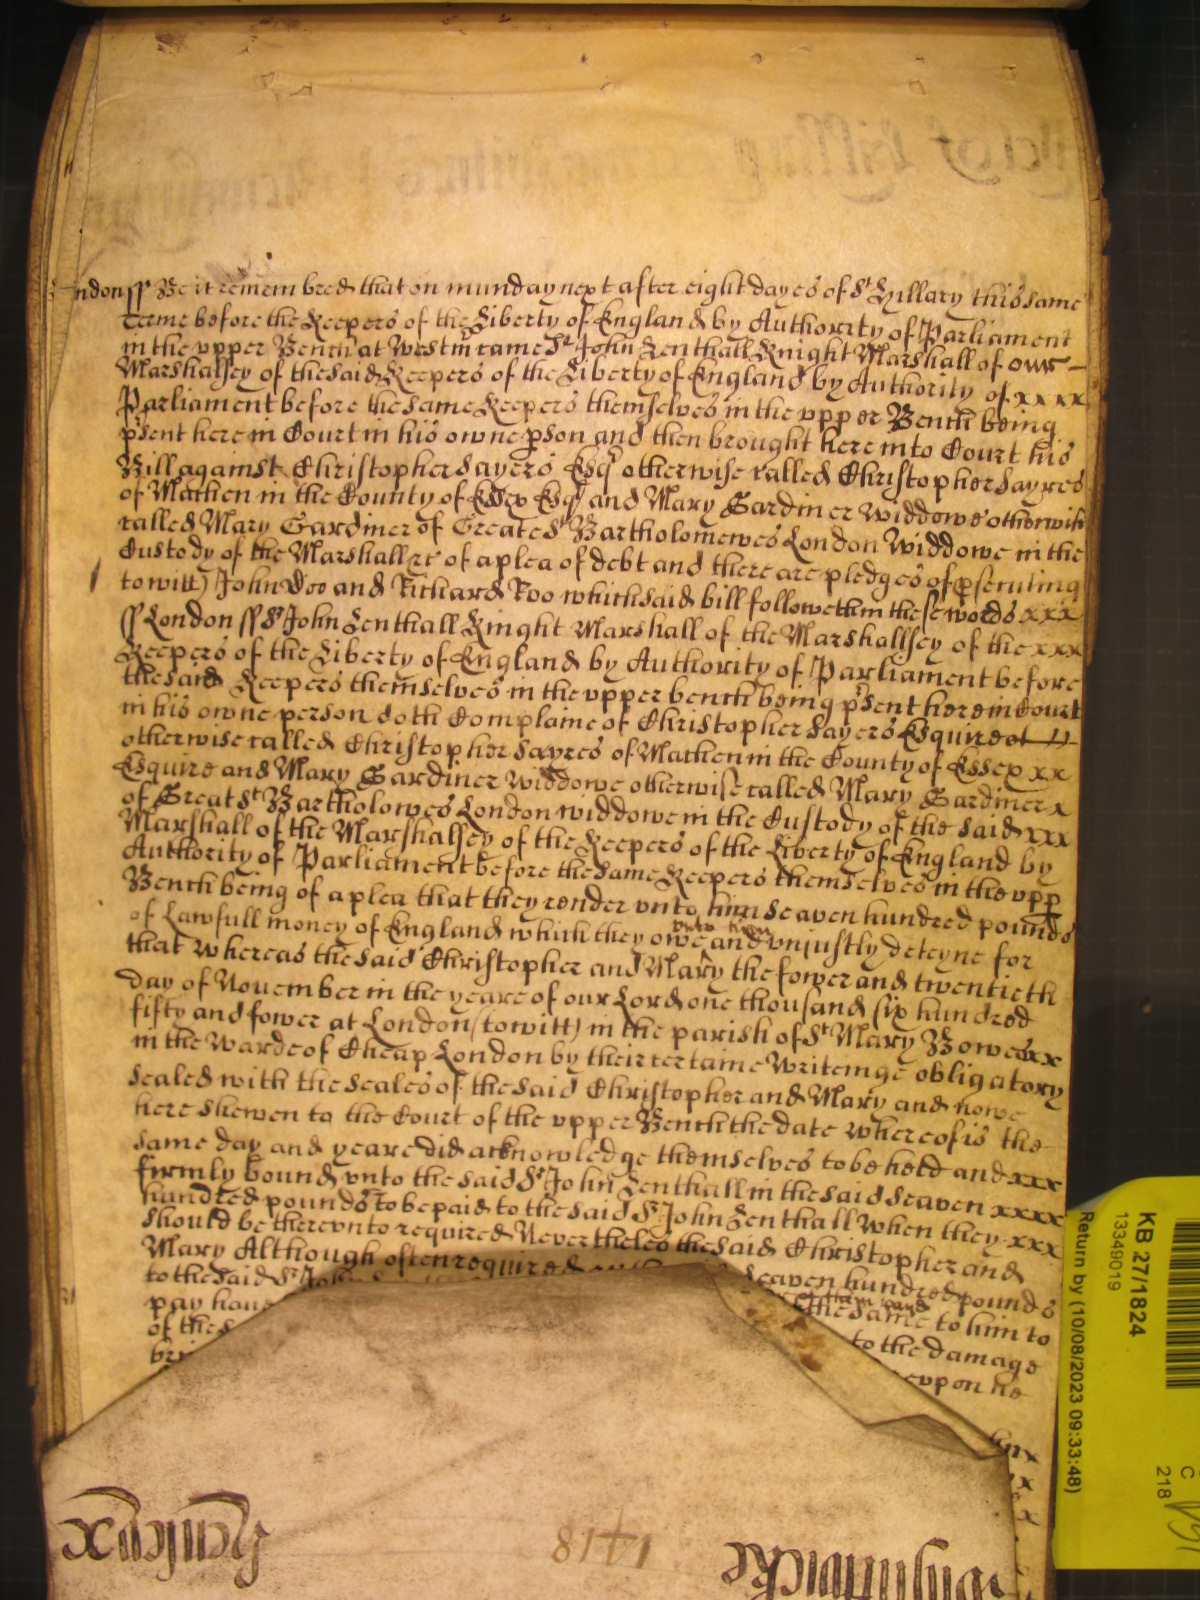 ndon ss Be it remembred that on munday next after eight dayes of St Hillary this same
terme before the Keepers of the Liberty of England by Authority of Parliament
in the vpper Bench at Westm came Sr John Lenthall Knight Marshall of our
Marshalsey of the said Keepers of the Liberty of England by Authority of xxxx
Parliament before the same Keepers themselves in the vpper Bench being
psent here in Court in his owne pson and then brought here into Court his
Bill against Christopher Sayers Esqr otherwise called Christopher Sayres
of Mathen in the County of Essex Esqr and Mary Gardiner Widdowe otherwise
called Mary Gardiner of Greate St Bartholomewes London Widdowe in the
Custody of the Marshall &c of a plea of debt and there are pledges of psecuting
to witt) John Doo and Richard Roo which said bill followeth in these words xxx
ss London ss Sr John Lenthall Knight Marshall of the Marshallsey of the xxx
Keepers of the Liberty of England by Authority of Parliament before
the said Keepers themselves in the vpper bench being psent here in Court
in his owne person doth Complaine of Christopher Sayers Esquire
otherwise called Christopher Sayres of Mathen in the County of Essex xx
Esquire and Mary Gardiner Widdowe otherwise called Mary Gardiner x
of Great St Bartholowes London widdowe in the Custody of the said xxx
Marshall of the Marshalsey of the Keepers of the Liberty of England by
Authority of Parliament before the same Keepers themselves in the vpp
Bench being of a plea that they render vnto him seaven hundred pounds
of Lawfull money of England which they owe vnto him and vnjustly deteyne for
that whereas the said Christopher and Mary the fower and twentieth
day of November in the yeare of our Lord one thousand six hundred
fifty and fower at London (to witt) in the parish of St Mary Bowes xx
in the Warde of Cheap London by their certaine Writeinge obligatory
sealed with the seales of the said Christopher and Mary and nowe
here shewen to the Court of the vpper Bench the date whereof is the
same day and yeare did acknowledge themselves to be held and xxx
firmly bound vnto the said Sr John Lenthall in the said seaven xxxx
hundred pounds to be paid to the said Sr John Lenthall when they xxx
should be therevnto required Nevertheles the said Christopher and
Mary Although often required seaven hundred pounds
to the said Sr John the same to him to
pay have to the damage
of the vpon he
1418
KB 27/1824
13349019
Return by (10/08/2023 09:33:48)
C
218